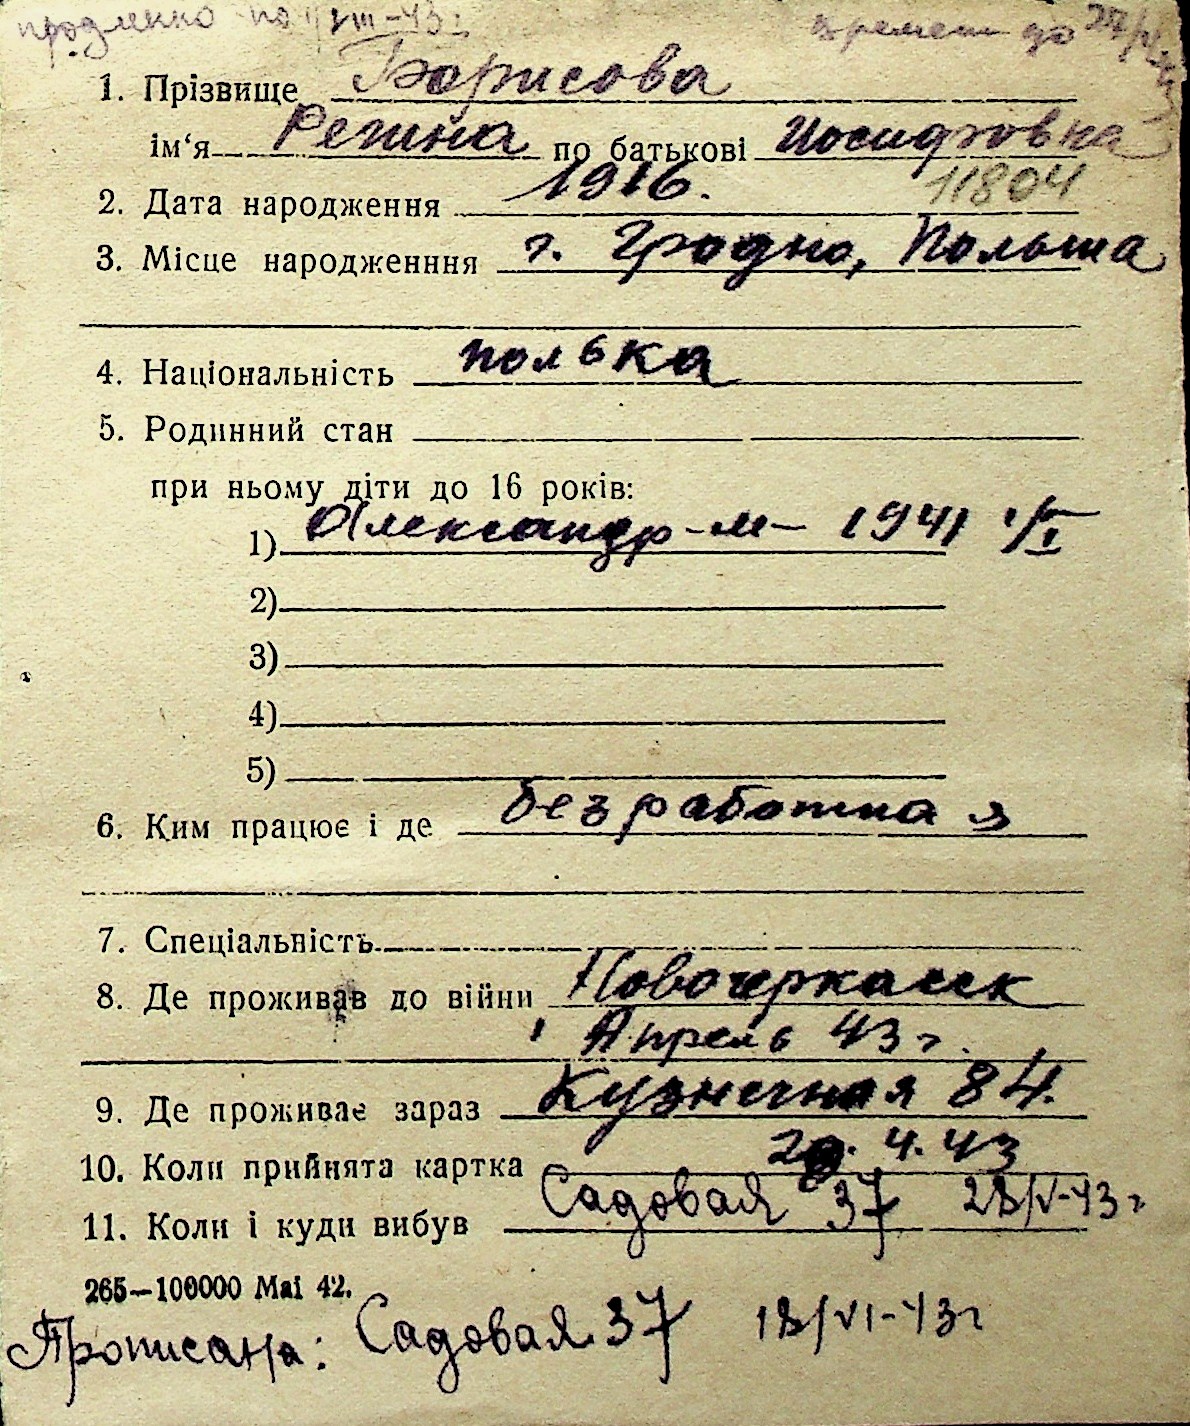 продленно по 1/VIII-43 г.
времен до
1. Прізвище Борисова
ім‘я Регина по батькові Иосифовна
11804
2. Дата народження 1916.
3. Місце народженння г. Гродно, Польша
4. Національність полька
5. Родинний стан
при ньому діти до 16 років:
1) Александр-м- 1941 1/I
2)
3)
4)
5)
6. Ким працює і де безработная
7. Спеціальність
8. Де проживав до війни Новочеркасск
Апрель 43 г.
9. Де проживає зараз Кузнечная 84.
10. Коли прийнята картка 4.43
11. Коли і куди вибув Садовая 37 28/V-43 г
265—100000 Mai 42.
Прописана: Садовая 37 18/VI-43 г